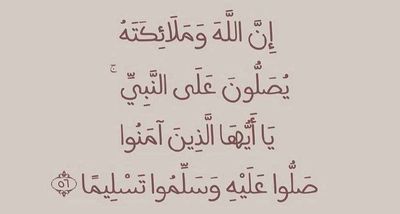 إِنَّ اللَّهَ وَمَلَائِكَتَهُ
يُصَلُّونَ عَلَى النَّبِيِّ ۚ
يَا أَيُّهَا الَّذِينَ آمَنُوا
صَلُّوا عَلَيْهِ وَسَلِّمُوا تَسْلِيمًا ٥٦